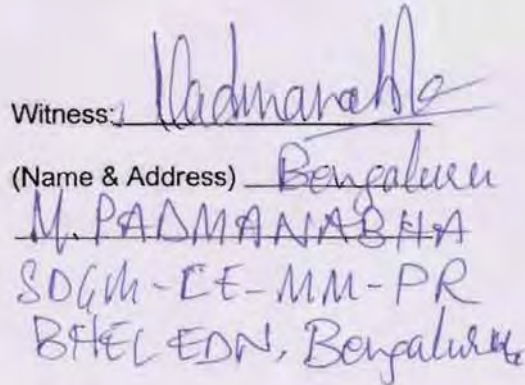 Witness: Padmanabha
(Name & Address) Bengaluru
M. PADMANABHA
SDGM-CE-MM-PR
BHEL EDN, Bengaluru